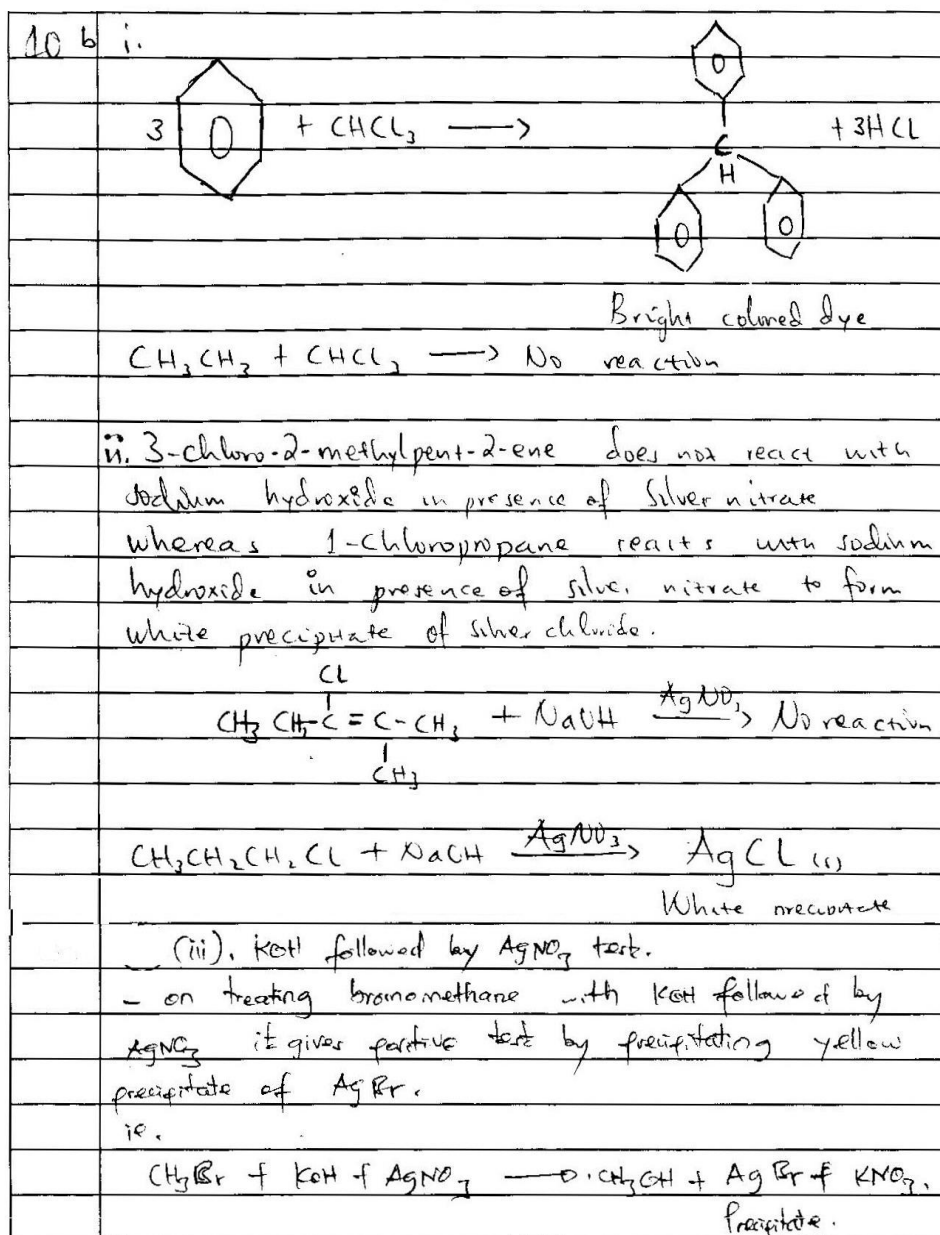 10 b i.
3 + CHCl₃ ⟶ C H + 3HCl
Bright colored dye
CH₃CH₃ + CHCl₃ ⟶ No reaction
ii. 3-chloro-2-methylpent-2-ene does not react with
sodium hydroxide in presence of Silver nitrate
whereas 1-Chloropropane reacts with sodium
hydroxide in presence of silver nitrate to form
white precipitate of silver chloride.
Cl
CH₃ CH₂-C = C-CH₃ + NaOH AgNO₃ ⟶ No reaction
CH₃
CH₃CH₂CH₂Cl + NaOH AgNO₃ ⟶ AgCl (s)
White precipitate
(iii). KOH followed by AgNO₃ test.
- on treating bromomethane with KOH followed by
AgNO₃ it gives positive test by precipitating yellow
precipitate of AgBr.
ie.
CH₃Br + KOH + AgNO₃ ⟶ CH₃OH + AgBr + KNO₃.
Precipitate.